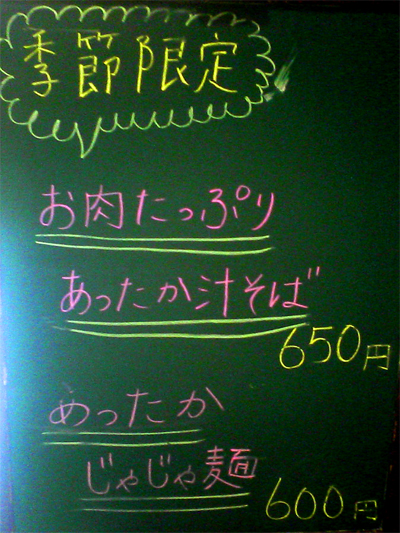 季節限定
お肉たっぷり
あったか汁そば
650円
あったか
じゃじゃ麺
600円